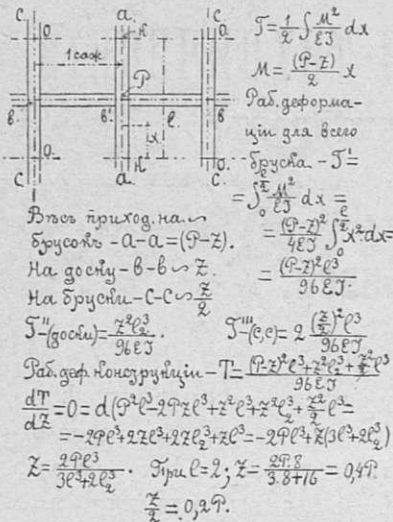 C. a. C.
O. к O.
1 саж.
P
в в' l в
x
O к O.
C a. C
T = 1/2 ∫ M²/EJ dx
M = (P-Z)/2 x
Раб. деформа-
ціи для всего
бруска - T' =
= ∫₀^(l/2) M²/EJ dx =
= (P-Z)²/4EJ ∫₀^(l/2) x² dx =
= (P-Z)² l³/96EJ.
Вѣсъ приход. на
брусокъ - a-a = (P-Z).
На доску - в-в ∽ Z.
На бруски - C-C ∽ Z/2
T''-(доски) = Z² l₂³/96EJ. T'''-(c,c) = 2 (Z/2)² l³/96EJ
Раб. деф. конструкціи - T = ((P-Z)² l³ + Z² l₂³ + Z²/2 l³)/96EJ
dT/dZ = 0 = d(P² l³ - 2PZ l³ + Z² l³ + Z² l₂³ + Z²/2 l³ =
= -2P l³ + 2Z l³ + 2Z l₂³ + Z l³ = -2P l³ + Z(3l³ + 2l₂³)
Z = 2P l³/(3l³ + 2l₂³). При l = 2; Z = 2P.8/(3.8+16) = 0,4P.
Z/2 = 0,2P.